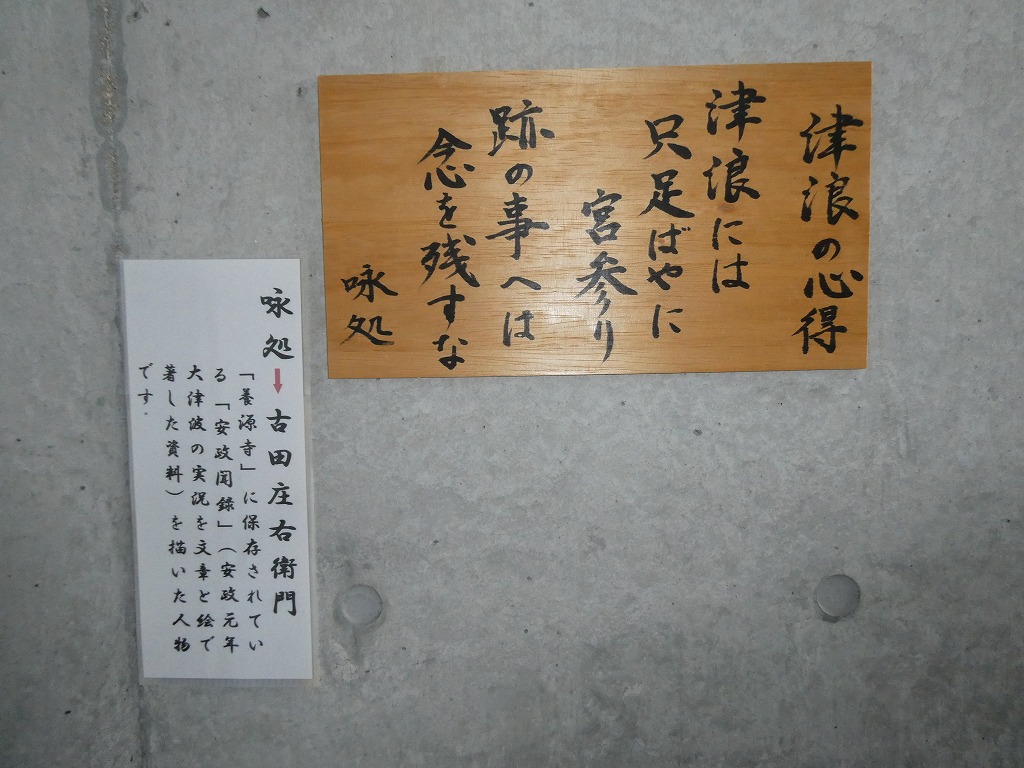 津浪の心得
津浪には
只足ばやに
宮参り
跡の事へは
念を残すな
咏処
咏処→古田庄右衛門
「養源寺」に保存されてい
る「安政聞録」（安政元年
大津波の実況を文章と絵で
著した資料）を描いた人物
です。